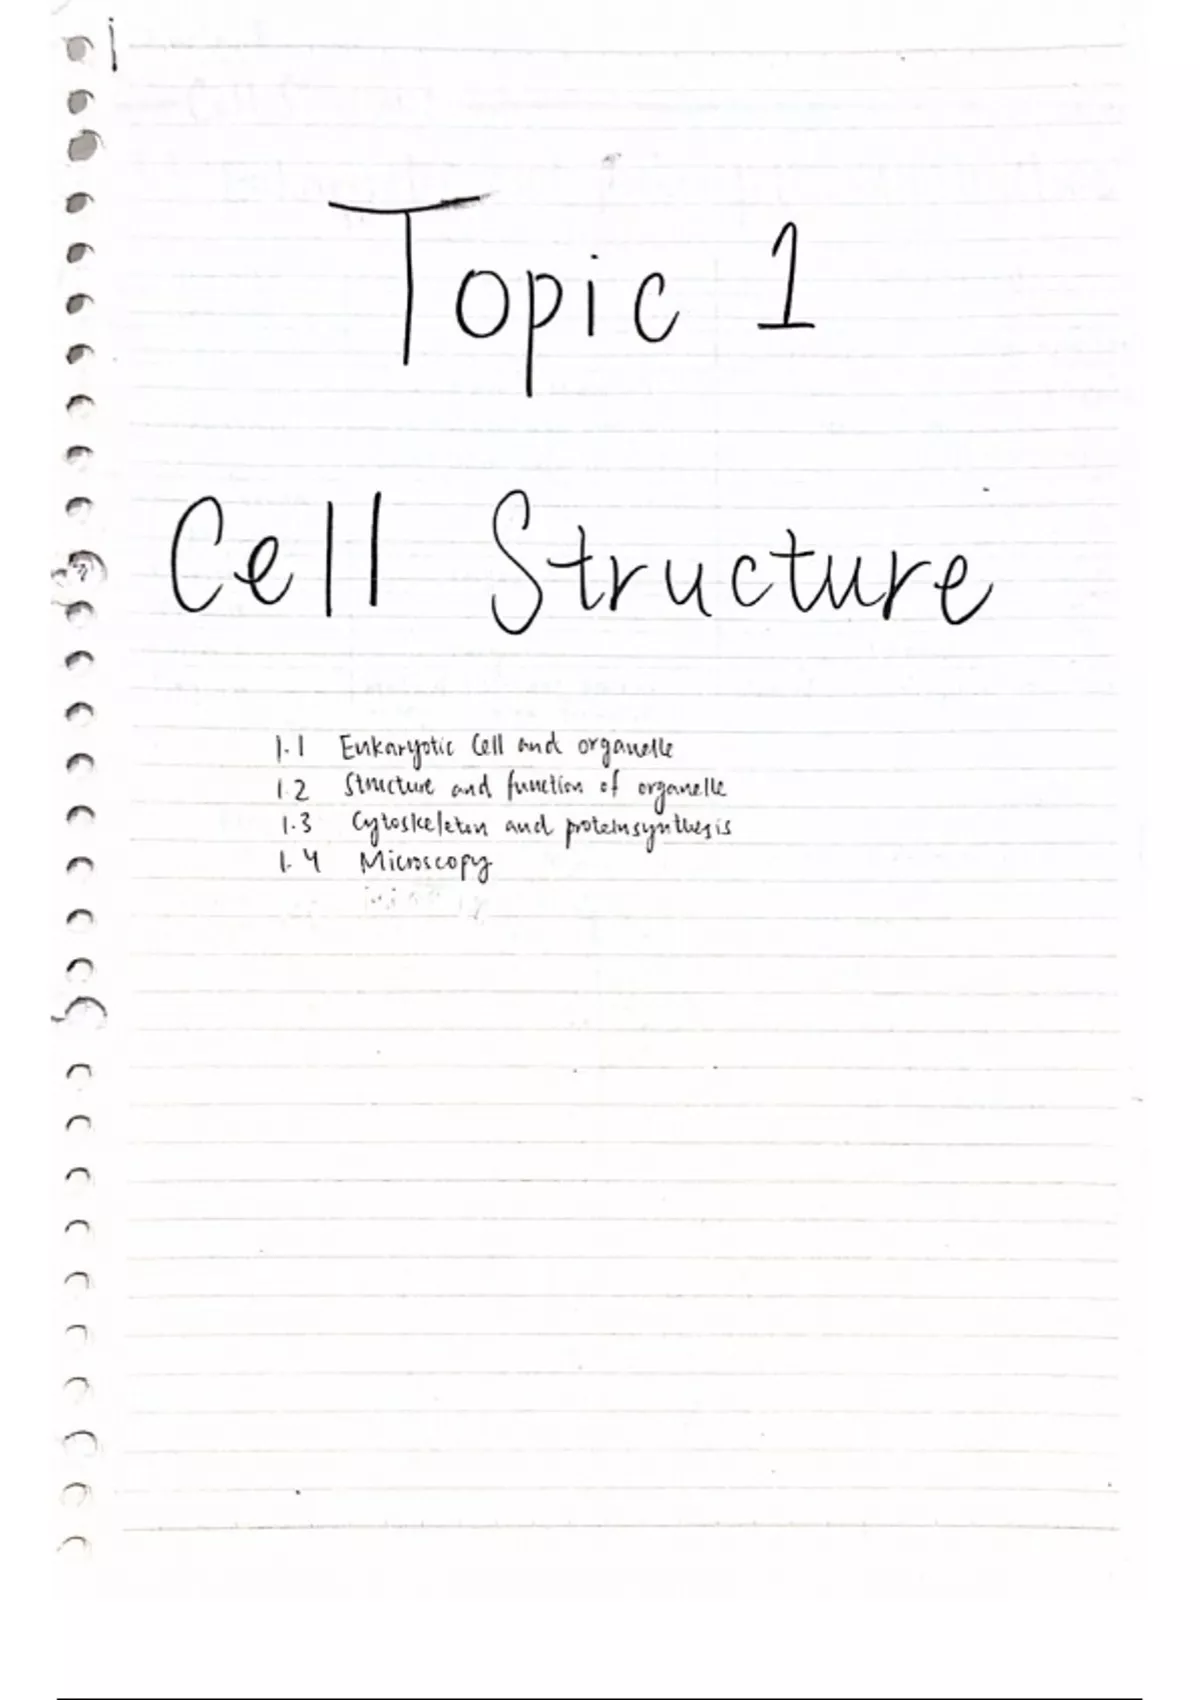 Topic 1
Cell Structure
1.1 Eukaryotic Cell and organelle
1.2 Structure and function of organelle
1.3 Cytoskeleton and protein synthesis
1.4 Microscopy